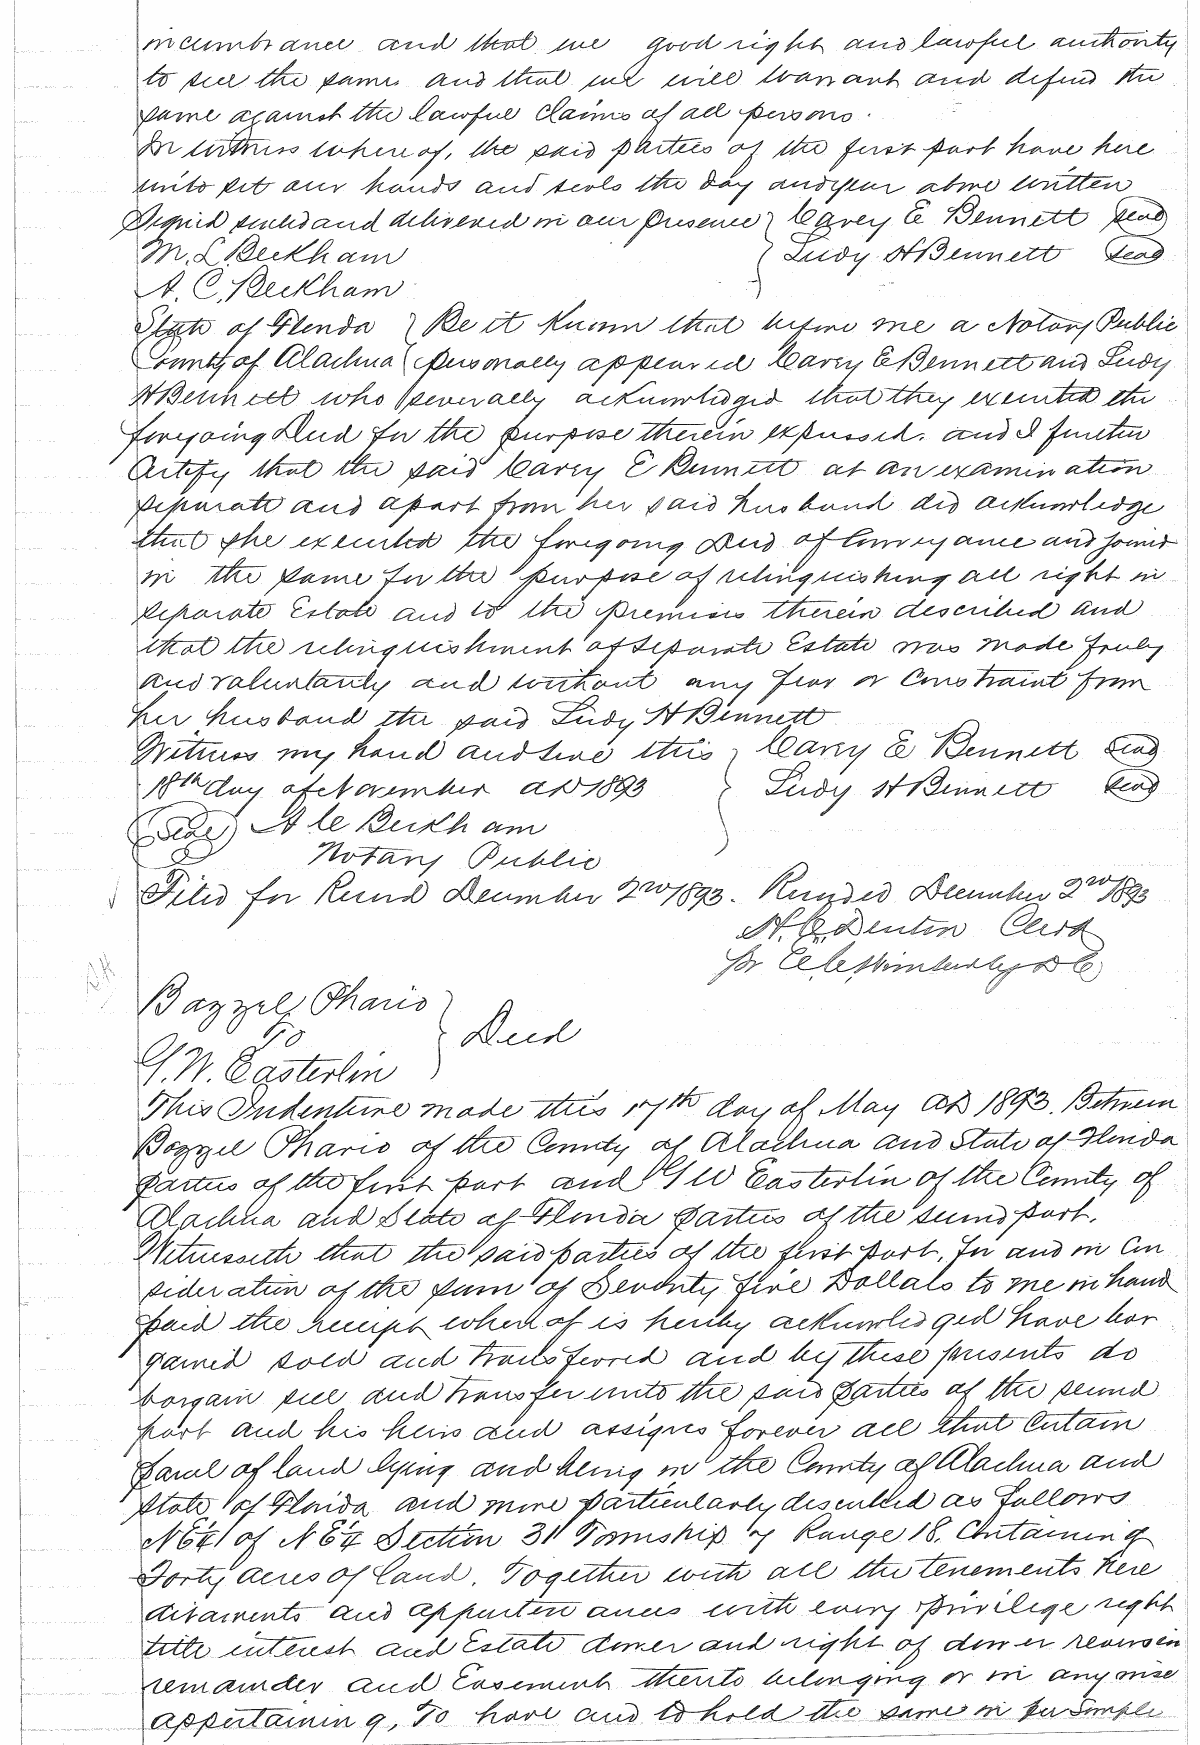 incumbrance and that we good right and lawful authority
to sell the same and that we will warrant and defend the
same against the lawful claims of all persons.
In witness whereof, the said parties of the first part have here
unto set our hands and seals the day and year above written
Signed sealed and delivered in our presence } Carey E Bennett (seal)
M. L. Beckham } Ludy H Bennett (seal)
A. C. Beckham
State of Florida } Be it Known that before me a Notary Public
County of Alachua { personally appeared Carey E Bennett and Ludy
H Bennett who severally acknowledged that they executed the
foregoing Deed for the purpose therein expressed. and I further
Certify that the said Carey E Bennett at an examination
separate and apart from her said husband did acknowledge
that she executed the foregoing Deed of Conveyance and joined
in the same for the purpose of relinquishing all right in
separate Estate and to the premises therein described and
that the relinquishment of separate Estate was made freely
and voluntarily and without any fear or constraint from
her husband the said Ludy H Bennett
Witness my hand and seal this } Carey E Bennett (seal)
18th day of November AD 1893 Ludy H Bennett (seal)
(Seal) A C Beckham
Notary Public
Filed for Record December 2nd 1893. Recorded December 2nd 1893
H. C. Denton Clerk
pr DC
Bazzel Phario
To } Deed
G. W. Easterlin
This Indenture made this 17th day of May AD 1893. Between
Bazzel Phario of the County of Alachua and State of Florida
parties of the first part and G W Easterlin of the County of
Alachua and State of Florida parties of the second part.
Witnesseth that the said parties of the first part, for and in con
sideration of the sum of Seventy five Dollars to me in hand
paid the receipt whereof is hereby acknowledged have bar
gained sold and transferred and by these presents do
bargain sell and transfer unto the said parties of the second
part and his heirs and assigns forever all that certain
parcel of land lying and being in the County of Alachua and
State of Florida and more particularly described as follows
NE¼ of NE¼ Section 31 Township 7 Range 18. Containing
Forty acres of land. Together with all the tenements here
ditaments and appurtenances with every privilege right
title interest and Estate dower and right of dower reversion
remainder and Easement thereto belonging or in any wise
appertaining, To have and to hold the same in fee simple